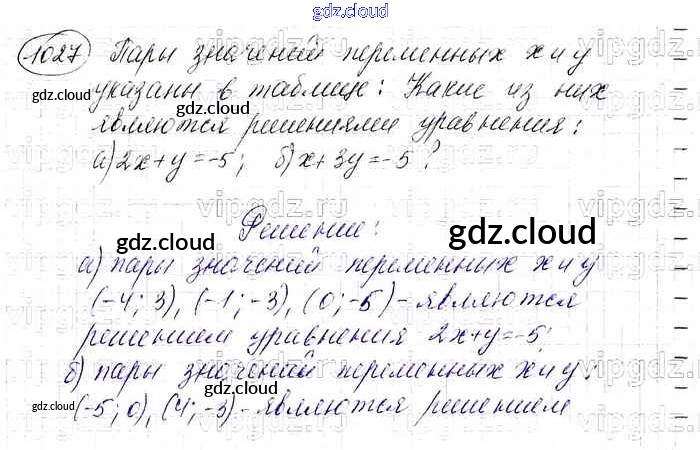 gdz.cloud
1027 Пары значений переменных x и y
указаны в таблице: Какие из них
являются решениями уравнения:
а) 2x+y=-5; б) x+3y=-5?
gdz.cloud gdz.cloud
gdz.cloud
Решение:
gdz.cloud gdz.cloud
а) пары значений переменных x и y
(-4; 3), (-1; -3), (0; -5) - являются
решением уравнения 2x+y=-5;
gdz.cloud
б) пары значений переменных x и y:
gdz.cloud gdz.cloud
gdz.cloud (-5; 0), (4; -3) - являются решением